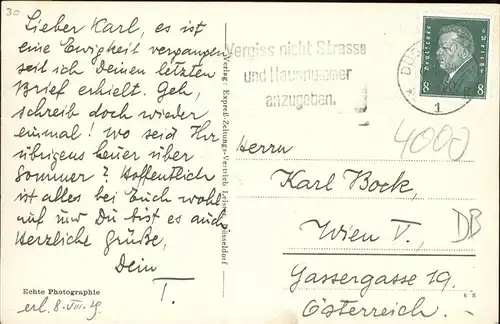 30
Lieber Karl, es ist
eine Ewigkeit vergangen
seit ich Deinen letzten
Brief erhielt. Geh,
schreib doch wieder
einmal! Wo seid Ihr
übrigens heuer über
Sommer? Hoffentlich
ist alles bei Euch wohl
auf und Du bist es auch
Herzliche Grüße,
Dein
T.
Echte Photographie
erh. 8. VIII. 29.
Verlag: Expreß-Zeitungs-Vertrieb Leiser, Düsseldorf
Vergiss nicht Strasse
und Hausnummer
anzugeben.
Deutsches Reich
8 8
DÜS
1
4000
Herrn
Karl Bock,
Wien V.,
DB
Gassergasse 19.
Österreich.